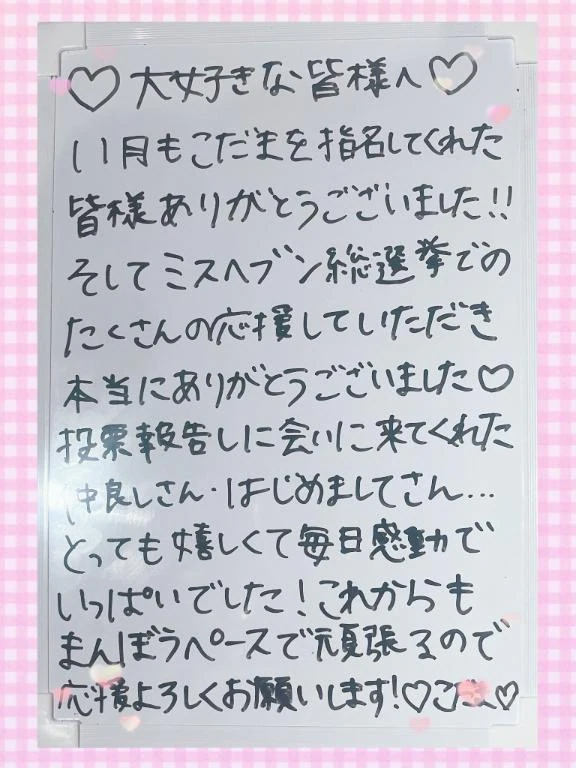 ♡大好きな皆様へ♡
11月もこだまを指名してくれた
皆様ありがとうございました!!
そしてミスヘブン総選挙での
たくさんの応援していただき
本当にありがとうございました♡
投票報告しに会いに来てくれた
仲良しさん・はじめましてさん...
とっても嬉しくて毎日感動で
いっぱいでした！これからも
まんぼうペースで頑張るので
応援よろしくお願いします!♡